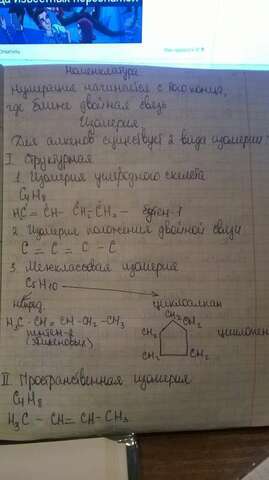 Номенклатура
Нумерация начинается с того конца,
где ближе двойная связь
Изомерия
Для алкенов существует 2 вида изомерии
I Структурная
1. Изомерия углеродного скелета
C4H8
HC = CH - CH2 - CH3 - бутен-1
2. Изомерия положения двойной связи
C = C = C - C
3. Межклассовая изомерия
C5H10
циклоалкан
H3C - CH = CH - CH2 - CH3
пентен-2
CH2
CH2
CH2
CH2
CH2
II. Пространственная изомерия
C4H8
H3C - CH = CH - CH3